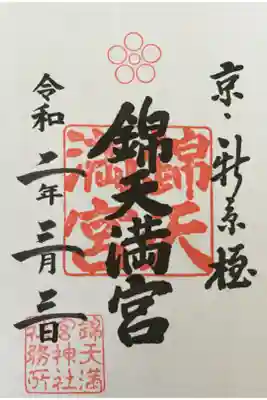 京・新京極
錦天満宮
錦天
満宮
令和二年三月三日
錦天満
宮神社
社務所